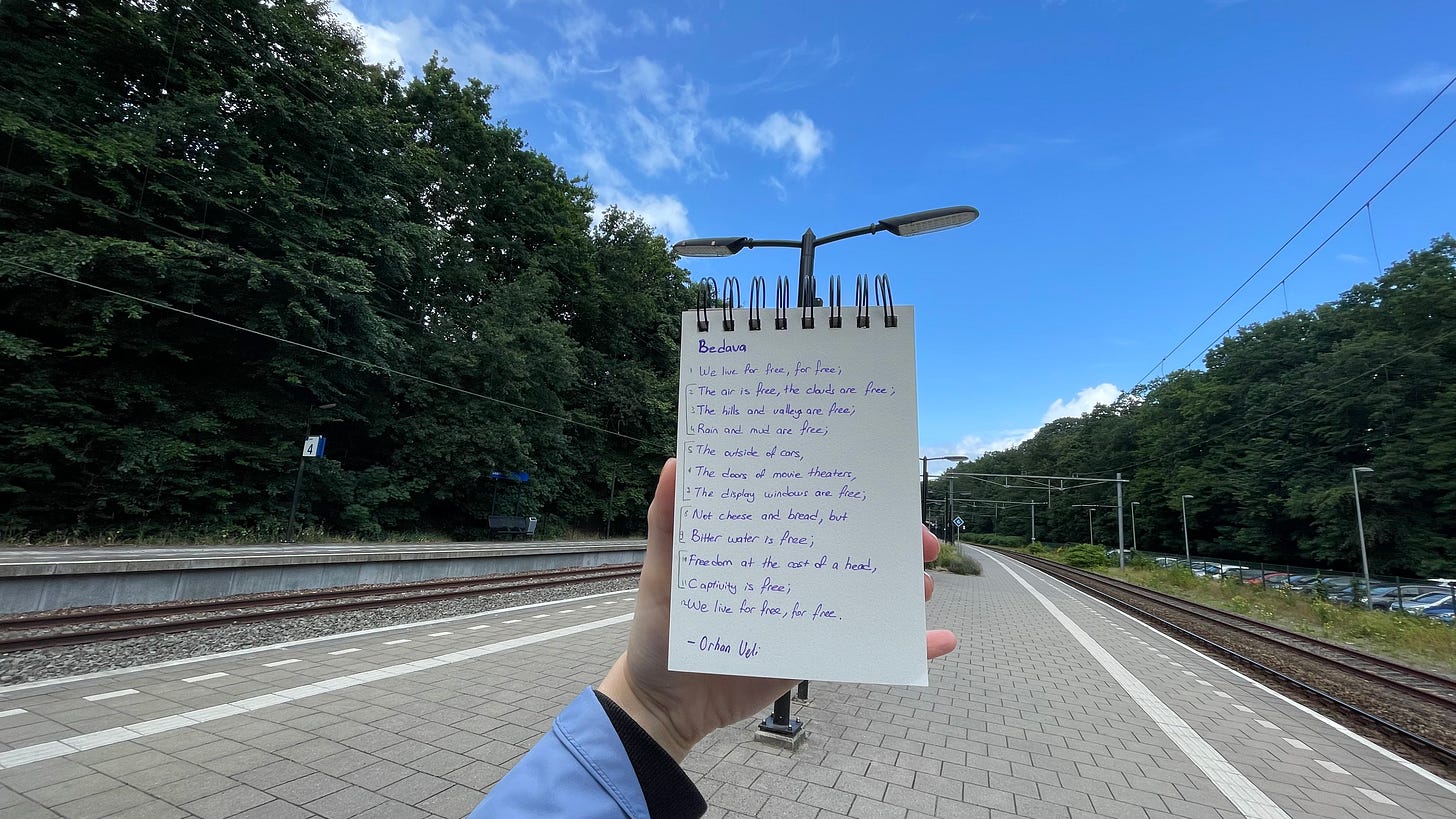 4
Bedava
1 We live for free, for free;
2 The air is free, the clouds are free;
3 The hills and valleys are free;
4 Rain and mud are free;
5 The outside of cars,
6 The doors of movie theaters,
7 The display windows are free;
8 Not cheese and bread, but
9 Bitter water is free;
10 Freedom at the cost of a head,
11 Captivity is free;
12 We live for free, for free.
- Orhan Veli